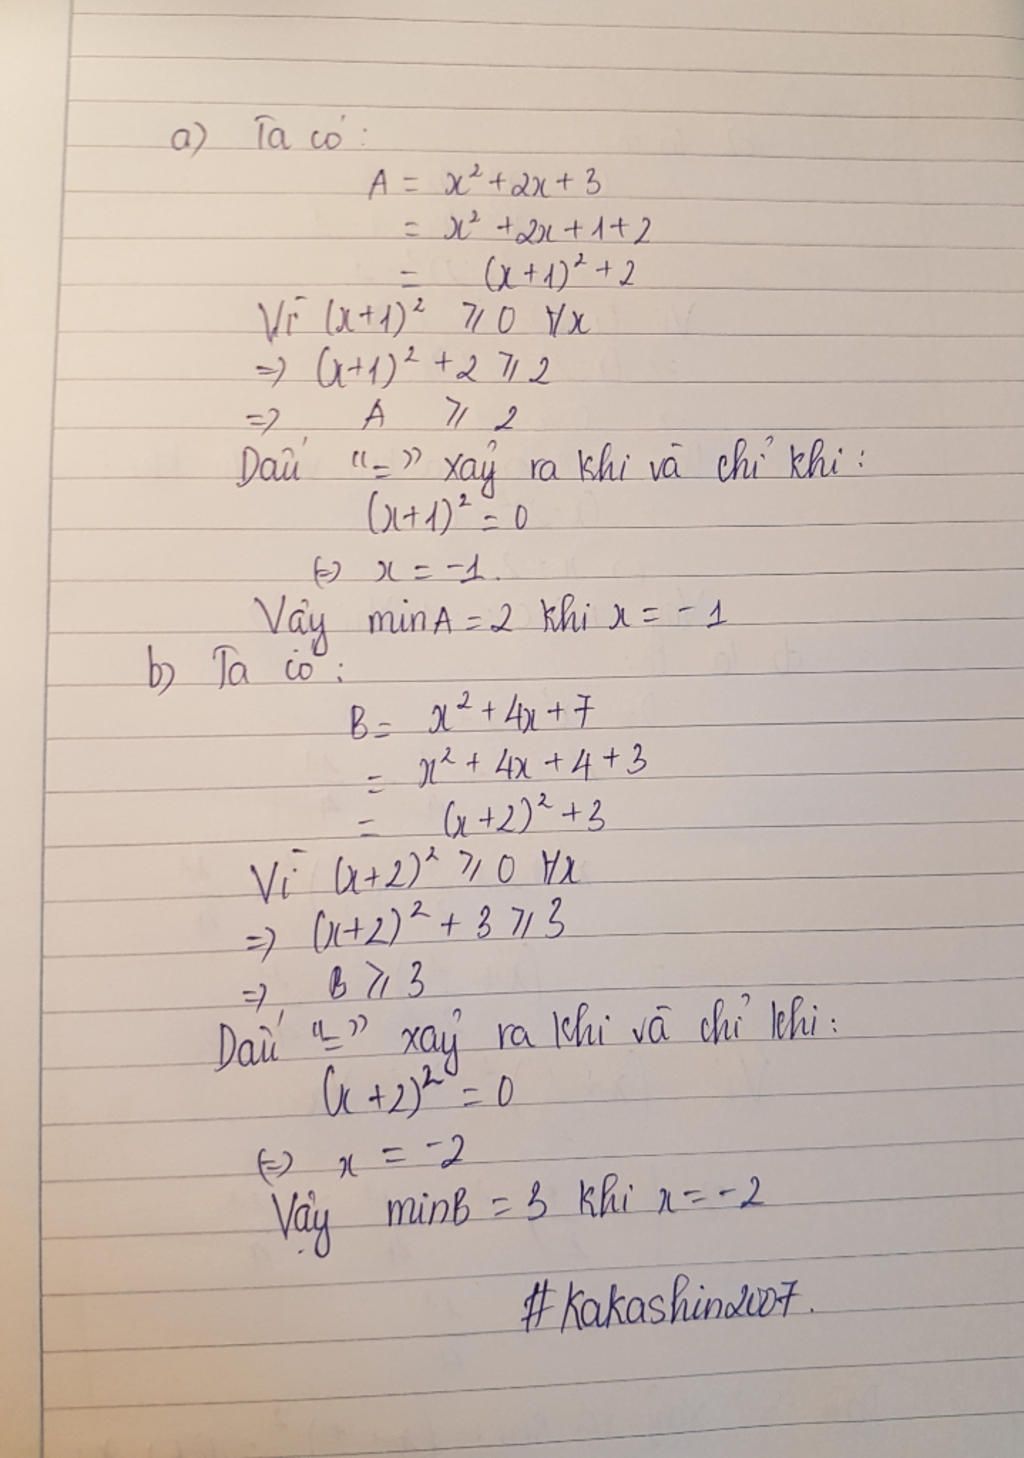 a) Ta có:
A = x² + 2x + 3
= x² + 2x + 1 + 2
= (x+1)² + 2
Vì (x+1)² ⩾ 0 ∀x
=> (x+1)² + 2 ⩾ 2
=> A ⩾ 2
Dấu "=" xảy ra khi và chỉ khi:
(x+1)² = 0
<=> x = -1.
Vậy minA = 2 khi x = -1
b) Ta có:
B = x² + 4x + 7
= x² + 4x + 4 + 3
= (x+2)² + 3
Vì (x+2)² ⩾ 0 ∀x
=> (x+2)² + 3 ⩾ 3
=> B ⩾ 3
Dấu "=" xảy ra khi và chỉ khi:
(x+2)² = 0
<=> x = -2
Vậy minB = 3 khi x = -2
#Kakashin2007.